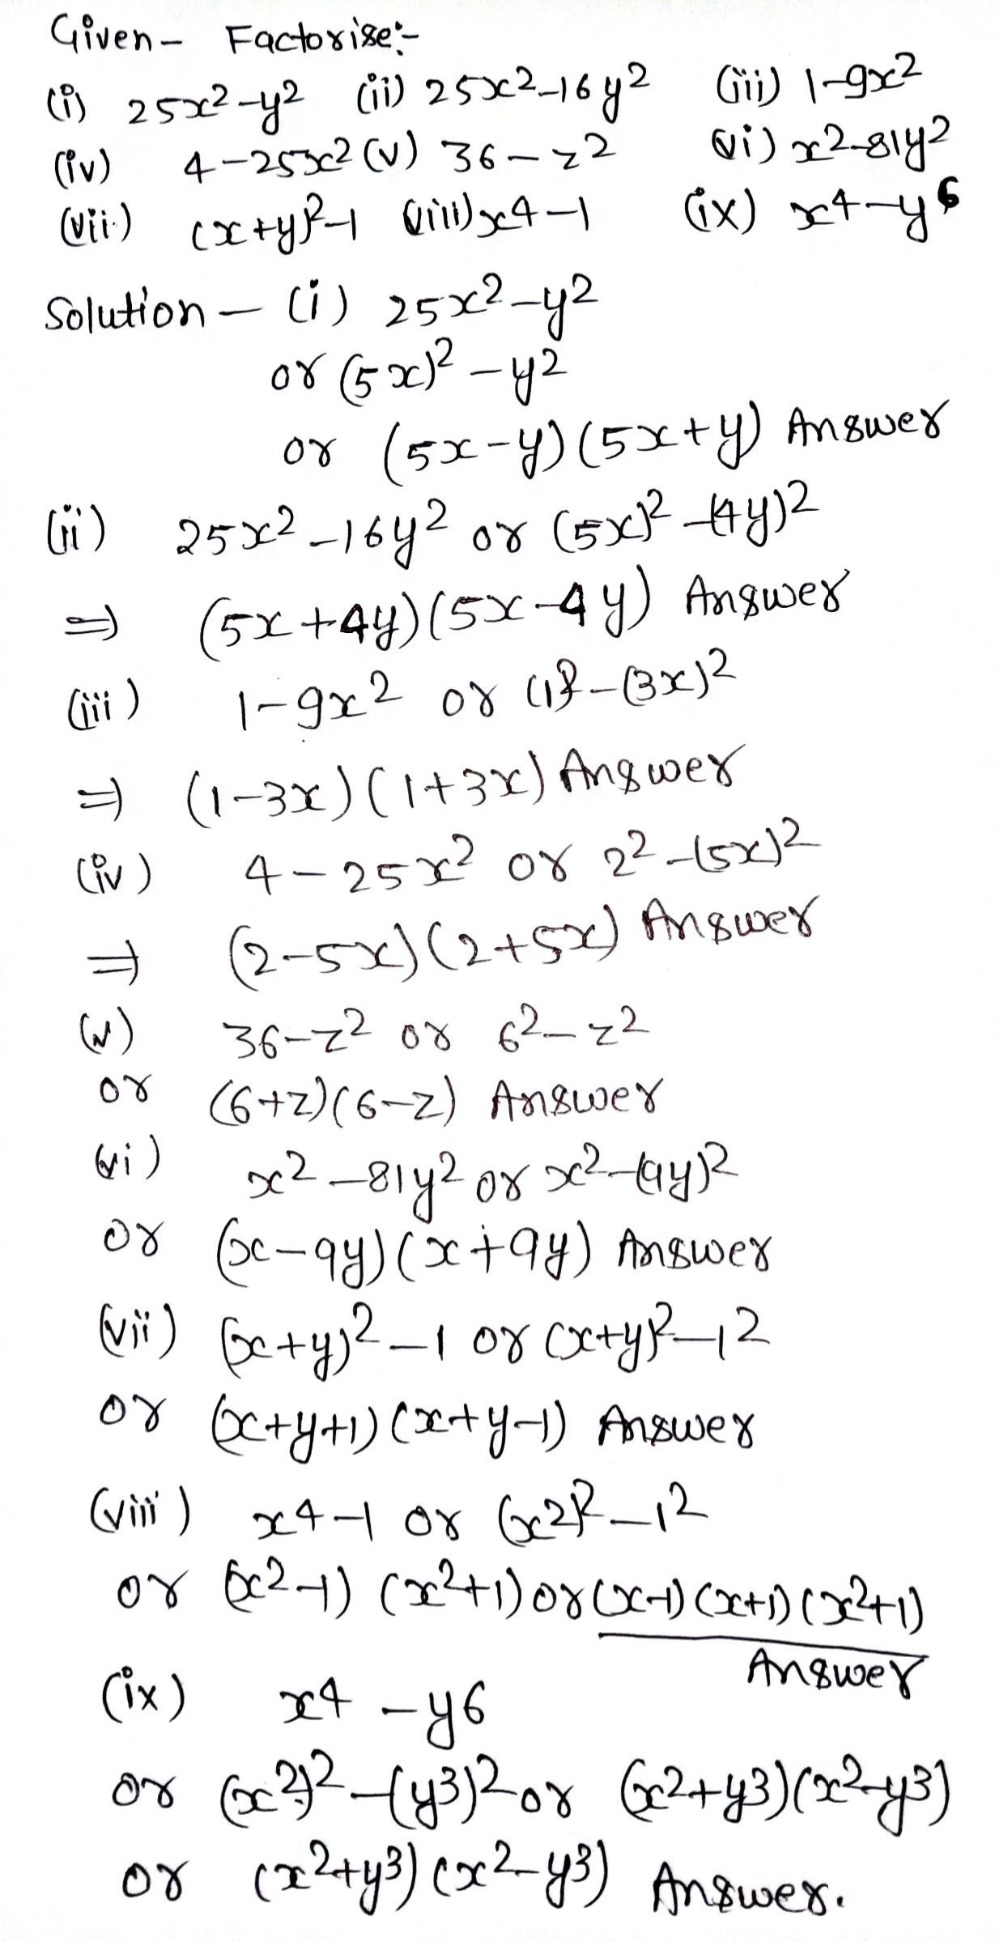 Given- Factorise:-
(i) 25x²-y² (ii) 25x²-16y² (iii) 1-9x²
(iv) 4-25x² (v) 36-z² (vi) x²-81y²
(vii) (x+y)²-1 (viii) x⁴-1 (ix) x⁴-y⁶
Solution- (i) 25x²-y²
or (5x)²-y²
or (5x-y)(5x+y) Answer
(ii) 25x²-16y² or (5x)²-(4y)²
⇒ (5x+4y)(5x-4y) Answer
(iii) 1-9x² or (1)²-(3x)²
⇒ (1-3x)(1+3x) Answer
(iv) 4-25x² or 2²-(5x)²
⇒ (2-5x)(2+5x) Answer
(v) 36-z² or 6²-z²
or (6+z)(6-z) Answer
(vi) x²-81y² or x²-(9y)²
or (x-9y)(x+9y) Answer
(vii) (x+y)²-1 or (x+y)²-1²
or (x+y+1)(x+y-1) Answer
(viii) x⁴-1 or (x²)²-1²
or (x²-1)(x²+1) or (x-1)(x+1)(x²+1)
Answer
(ix) x⁴-y⁶
or (x²)²-(y³)² or (x²+y³)(x²-y³)
or (x²+y³)(x²-y³) Answer.